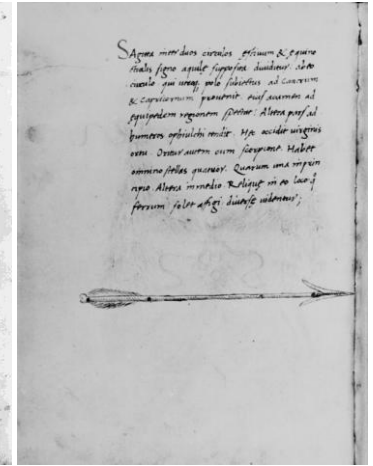 SAgitta inter duos circulos estivum & equino
ctialis signo aquilę supposita dividitur. ab eo
circulo qui utroq; polo subiectus ad Cancrum
& Capricornum pervenit. eius acumen ad
equipedem regionem spectat: Altera pars ad
humeros ophiulchi tendit. Hęc occidit virginis
ortu. Oritur autem cum scorpione. Habet
omnino stellas quatuor. Quarum una in prin
cipio. Altera in medio. Reliquę in eo loco q̃
ferrum solet afigi diversę videntur;